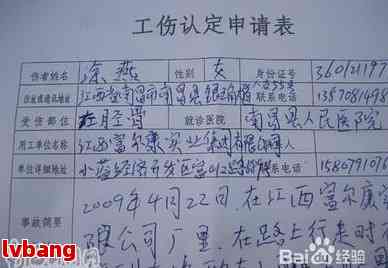 工伤认定申请表
伤者姓名 涂燕 性别 女 身份证号 360121197
住址或通讯地址 江西省南昌市南昌县银三角 联系电话 1357081498
受伤部位 左胫骨 就诊医院 南昌县人民医院
用工单位名称 江西富尔康实业集团有限公司
单位详细地址 小蓝经济开发区富山 路 联系电话 1580791016
事故简要 2009年4月22日,在江西富尔康实
限公司厂里,在路上行走时
lvbang
Bai 百度经验